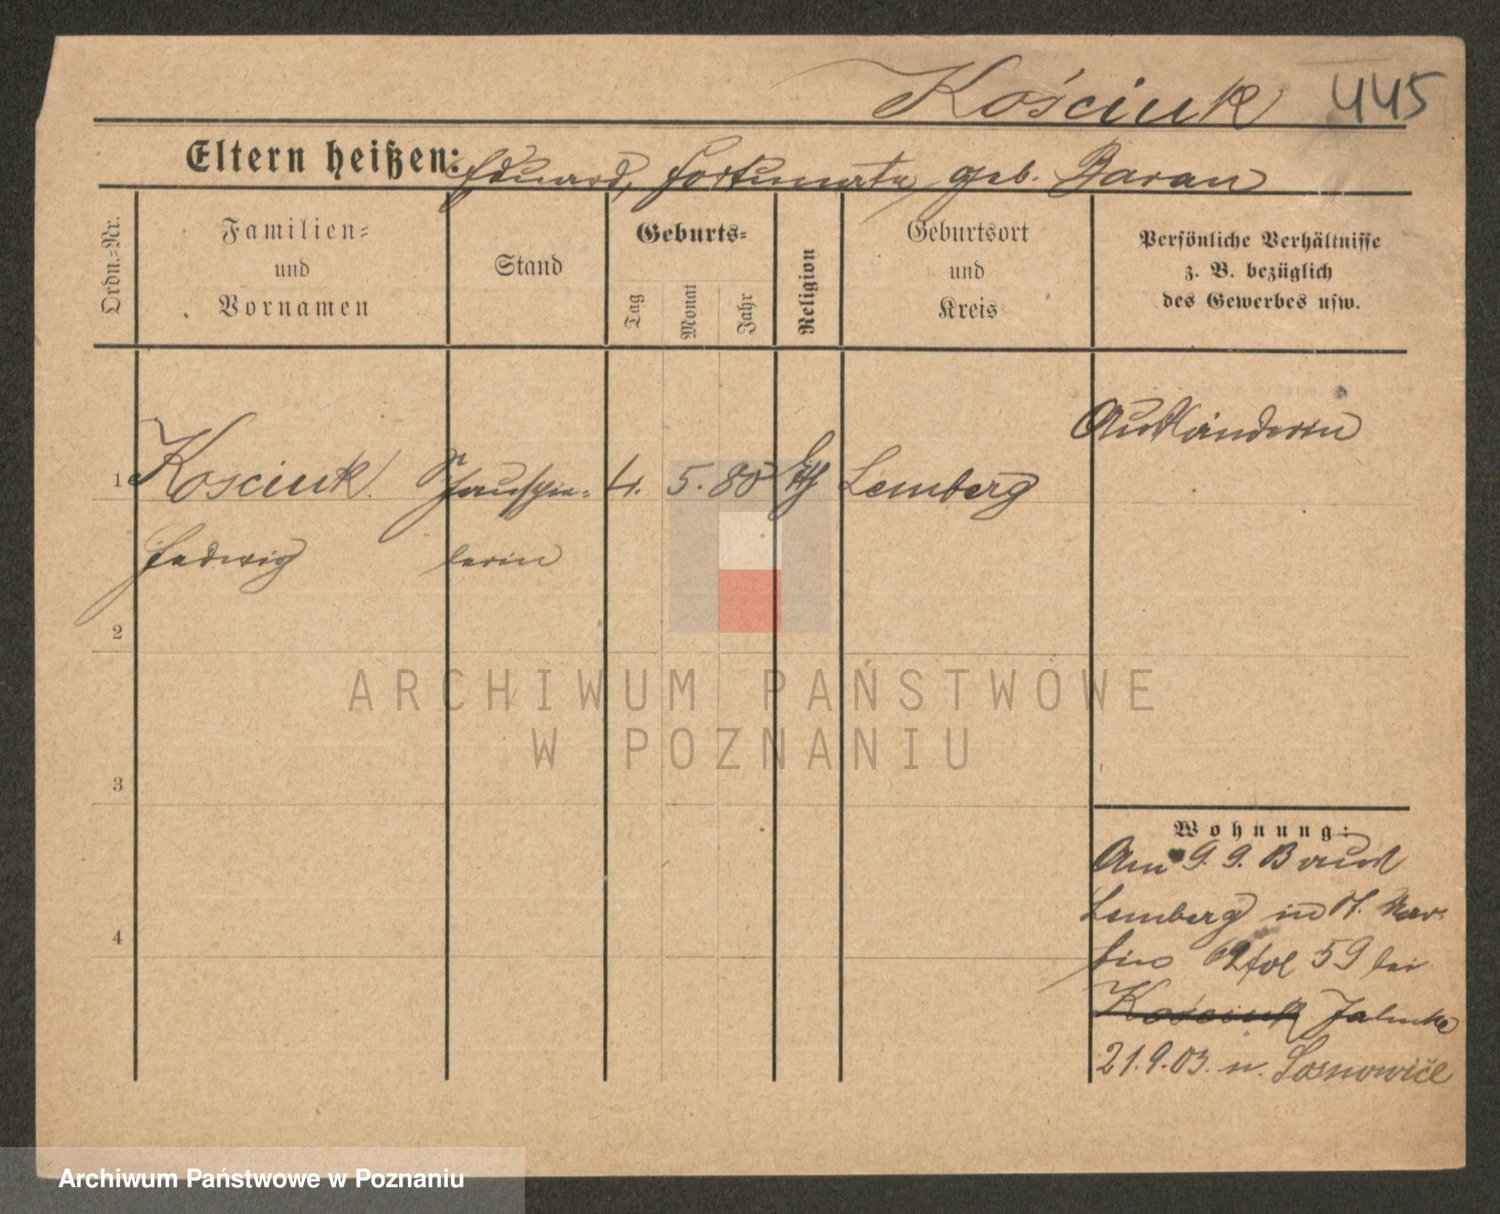 Kościuk 445
Eltern heißen: Eduard, Fortunata, geb. Baran
Ordn.-Nr.
Familien-
und
Vornamen
Stand
Geburts-
Tag
Monat
Jahr
Religion
Geburtsort
und
Kreis
Persönliche Verhältnisse
z. B. bezüglich
des Gewerbes usw.
Ausländerin
1 Kosciuk Schauspie- 4. 5. 80 kth Lemberg
Hedwig lerin
2
ARCHIWUM PAŃSTWOWE
W POZNANIU
3
Wohnung:
Am 9. 9. 03 aus
Lemberg in St. Mar-
tin 59 bei
Kościuk
4
21.9.03. n. Sosnowice
Archiwum Państwowe w Poznaniu